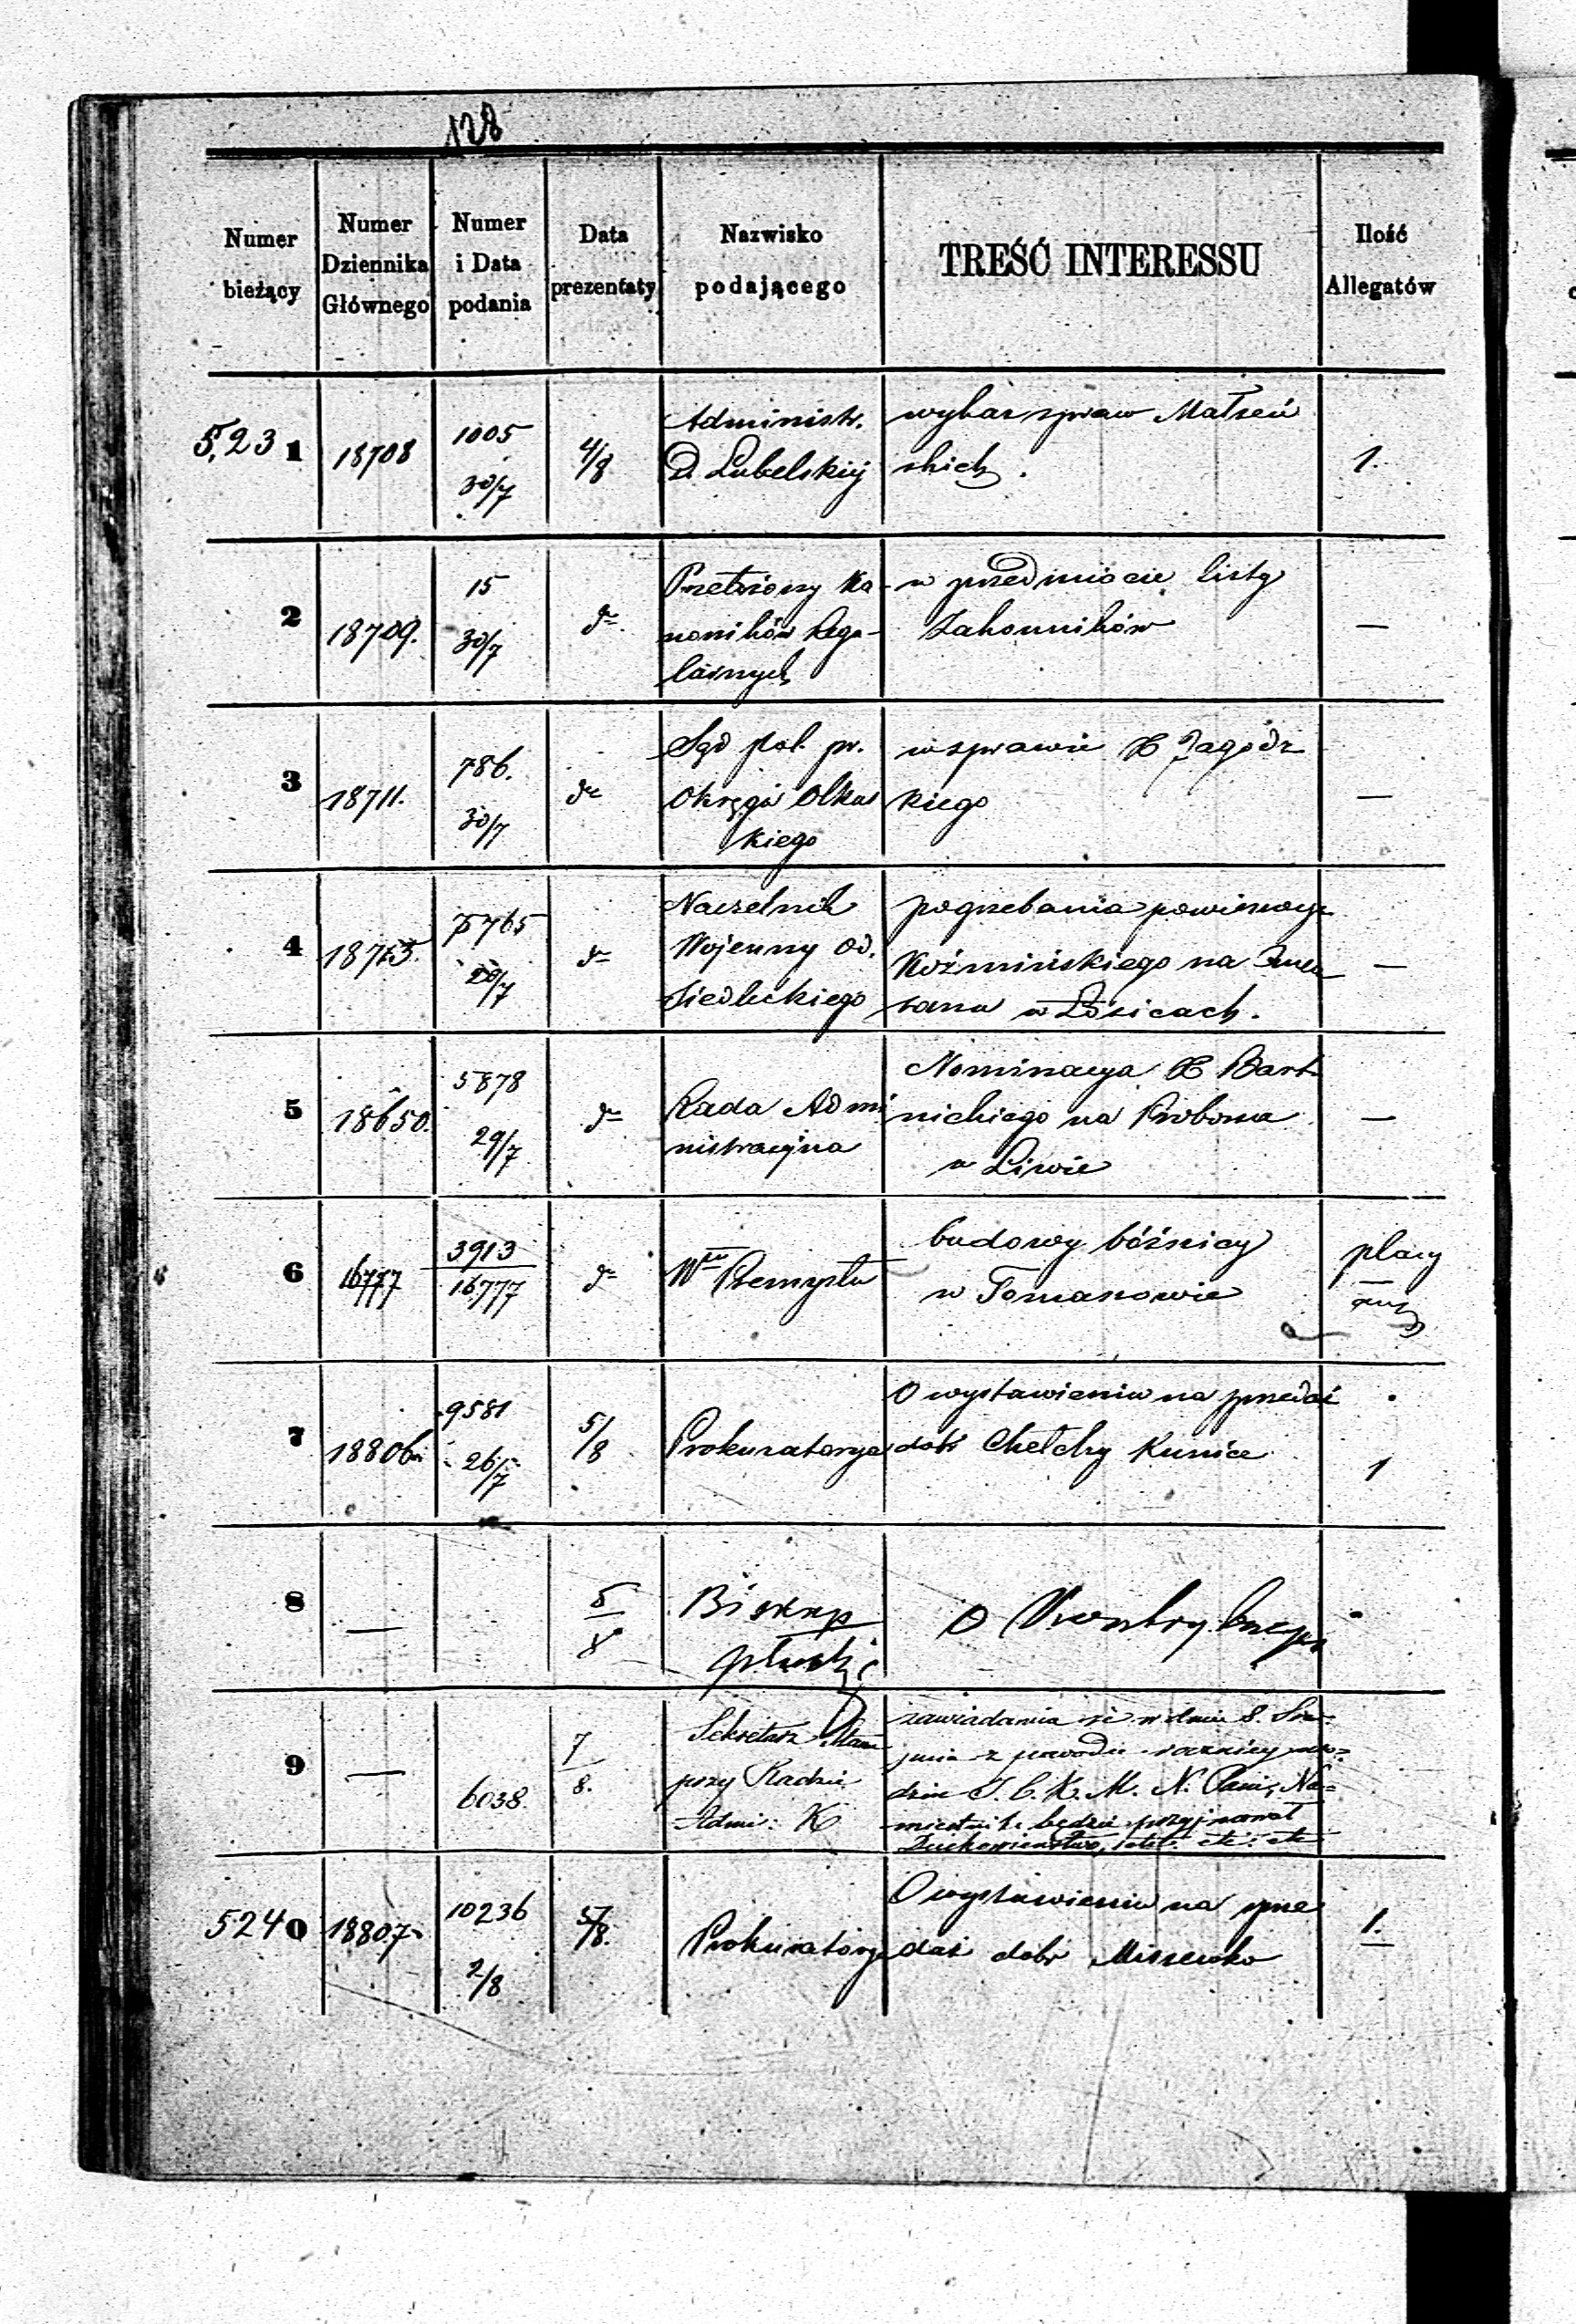 128
Numer bieżący
Numer Dziennika Głównego
Numer i Data podania
Data prezentaty
Nazwisko podającego
TREŚĆ INTERESSU
Ilość Allegatów
5,23 1
18708
1005
30/7
4/8
Administr.
D. Lubelskiej
wykaz spraw Małżeń
skich.
1.
2
18709.
15
30/7
do
Przełożony Ka-
noników Regu-
larnych
w przedmiocie listy
Zakonników
—
3
18711.
786.
30/7
do
Sąd pol. pr.
Okręgu Olkus
kiego
w sprawie X Zagódz
kiego
—
4
18715.
7765
28/7
do
Naczelnik
Wojenny Od.
Siedleckiego
pogrzebania powieszonego
Koźmińskiego na Cmen
tarzu w Łosicach.
—
5
18650.
5878
29/7
do
Rada Admi
nistracyjna
Nominacya X Bart
nickiego na Probosza
w Liwie
—
6
16777
3913
16777
do
Przemysłu
budowy bóźnicy
w Tomaszowie
plany
7
18806
9581
26/7
5/8
Prokuratorya
O wystawieniu na sprzedaż
dóbr Chełchy Kunice
1
8
—
5
8
Biskup
płocki
O Kontrybucyi
9
—
6038
7
8.
Sekretarz Stanu
przy Radzie
Admi: K
zawiadamia że w dniu 8. Sier-
pnia z powodu rocznicy uro-
dzin J. C. K. M. N. Pani, Na-
miestnik będzie przyjmował
Duchowieństwo, etc. etc. etc
524 0
18807
10236
2/8
5/8.
Prokuratorya
O wystawieniu na sprze
daż dóbr Miszewko
1.